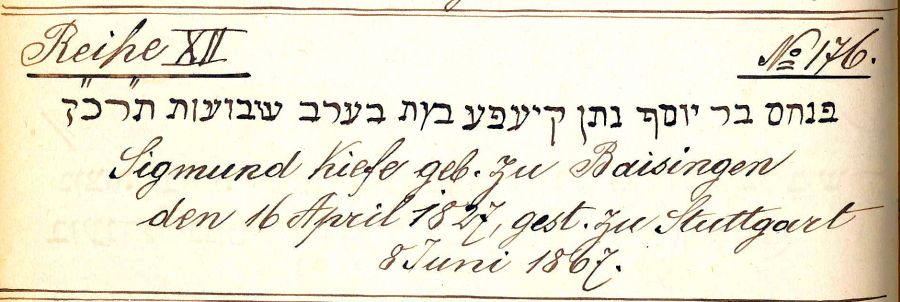 Reihe XII
No 176.
פנחס בר יוסף נתן קיעפע בזת בערב שבועות תרכ"ז
Sigmund Kiefe geb. zu Baisingen
den 16 April 1827, gest. zu Stuttgart
8 Juni 1867.